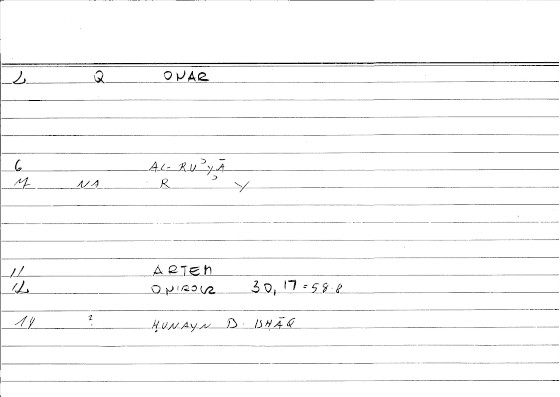 2 Q ONAR
6 AL-RUʾYĀ
NA R ʾ Y
11 ARTEM
12 ONIROCR 30,17=58.8
14 ? ḤUNAYN B. ISḤĀQ